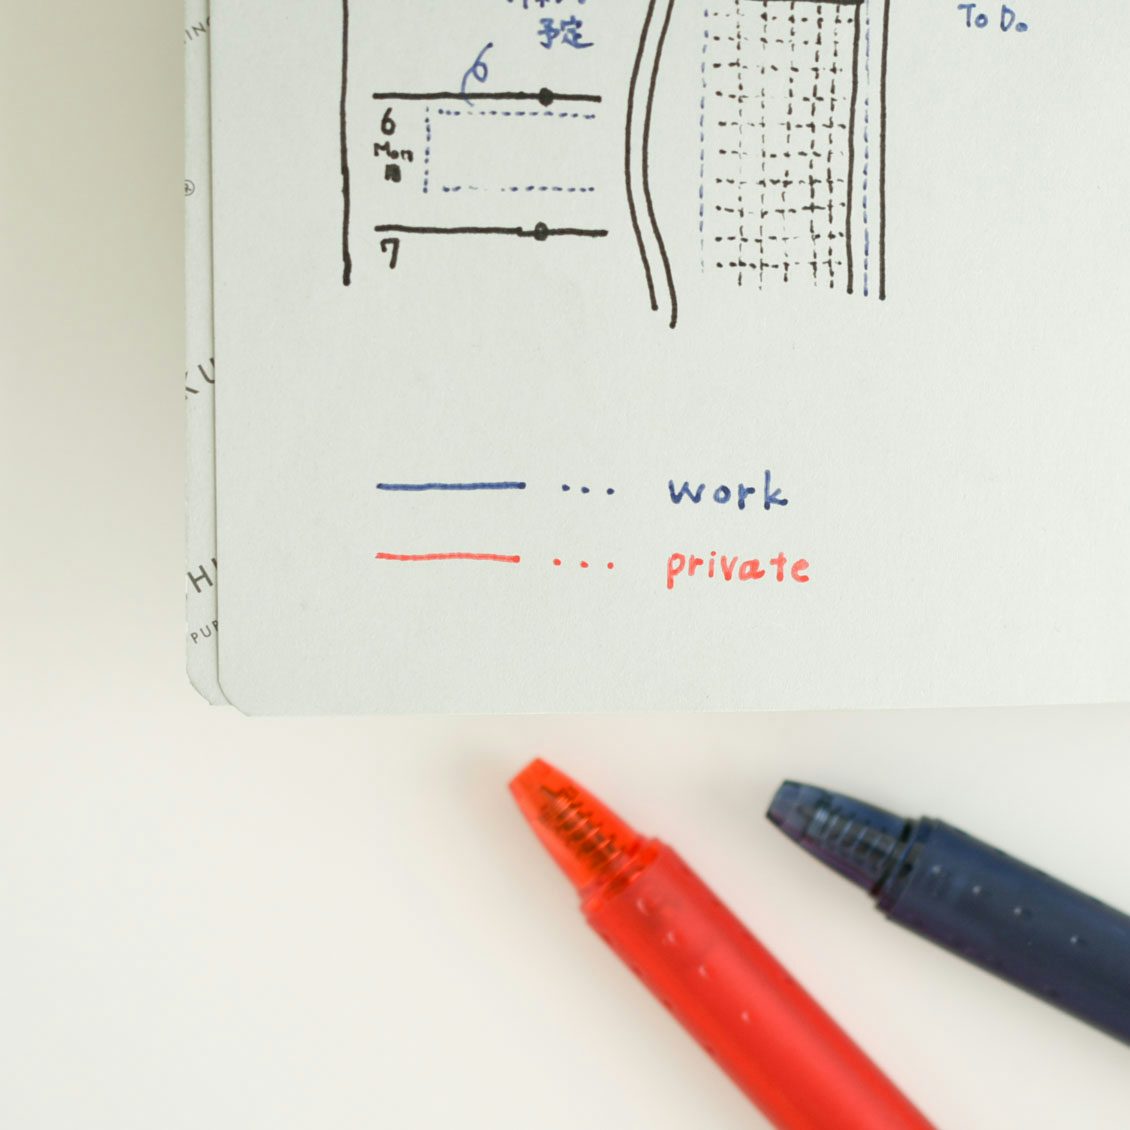 予定
To Do
6
Mon
7
... work
... private